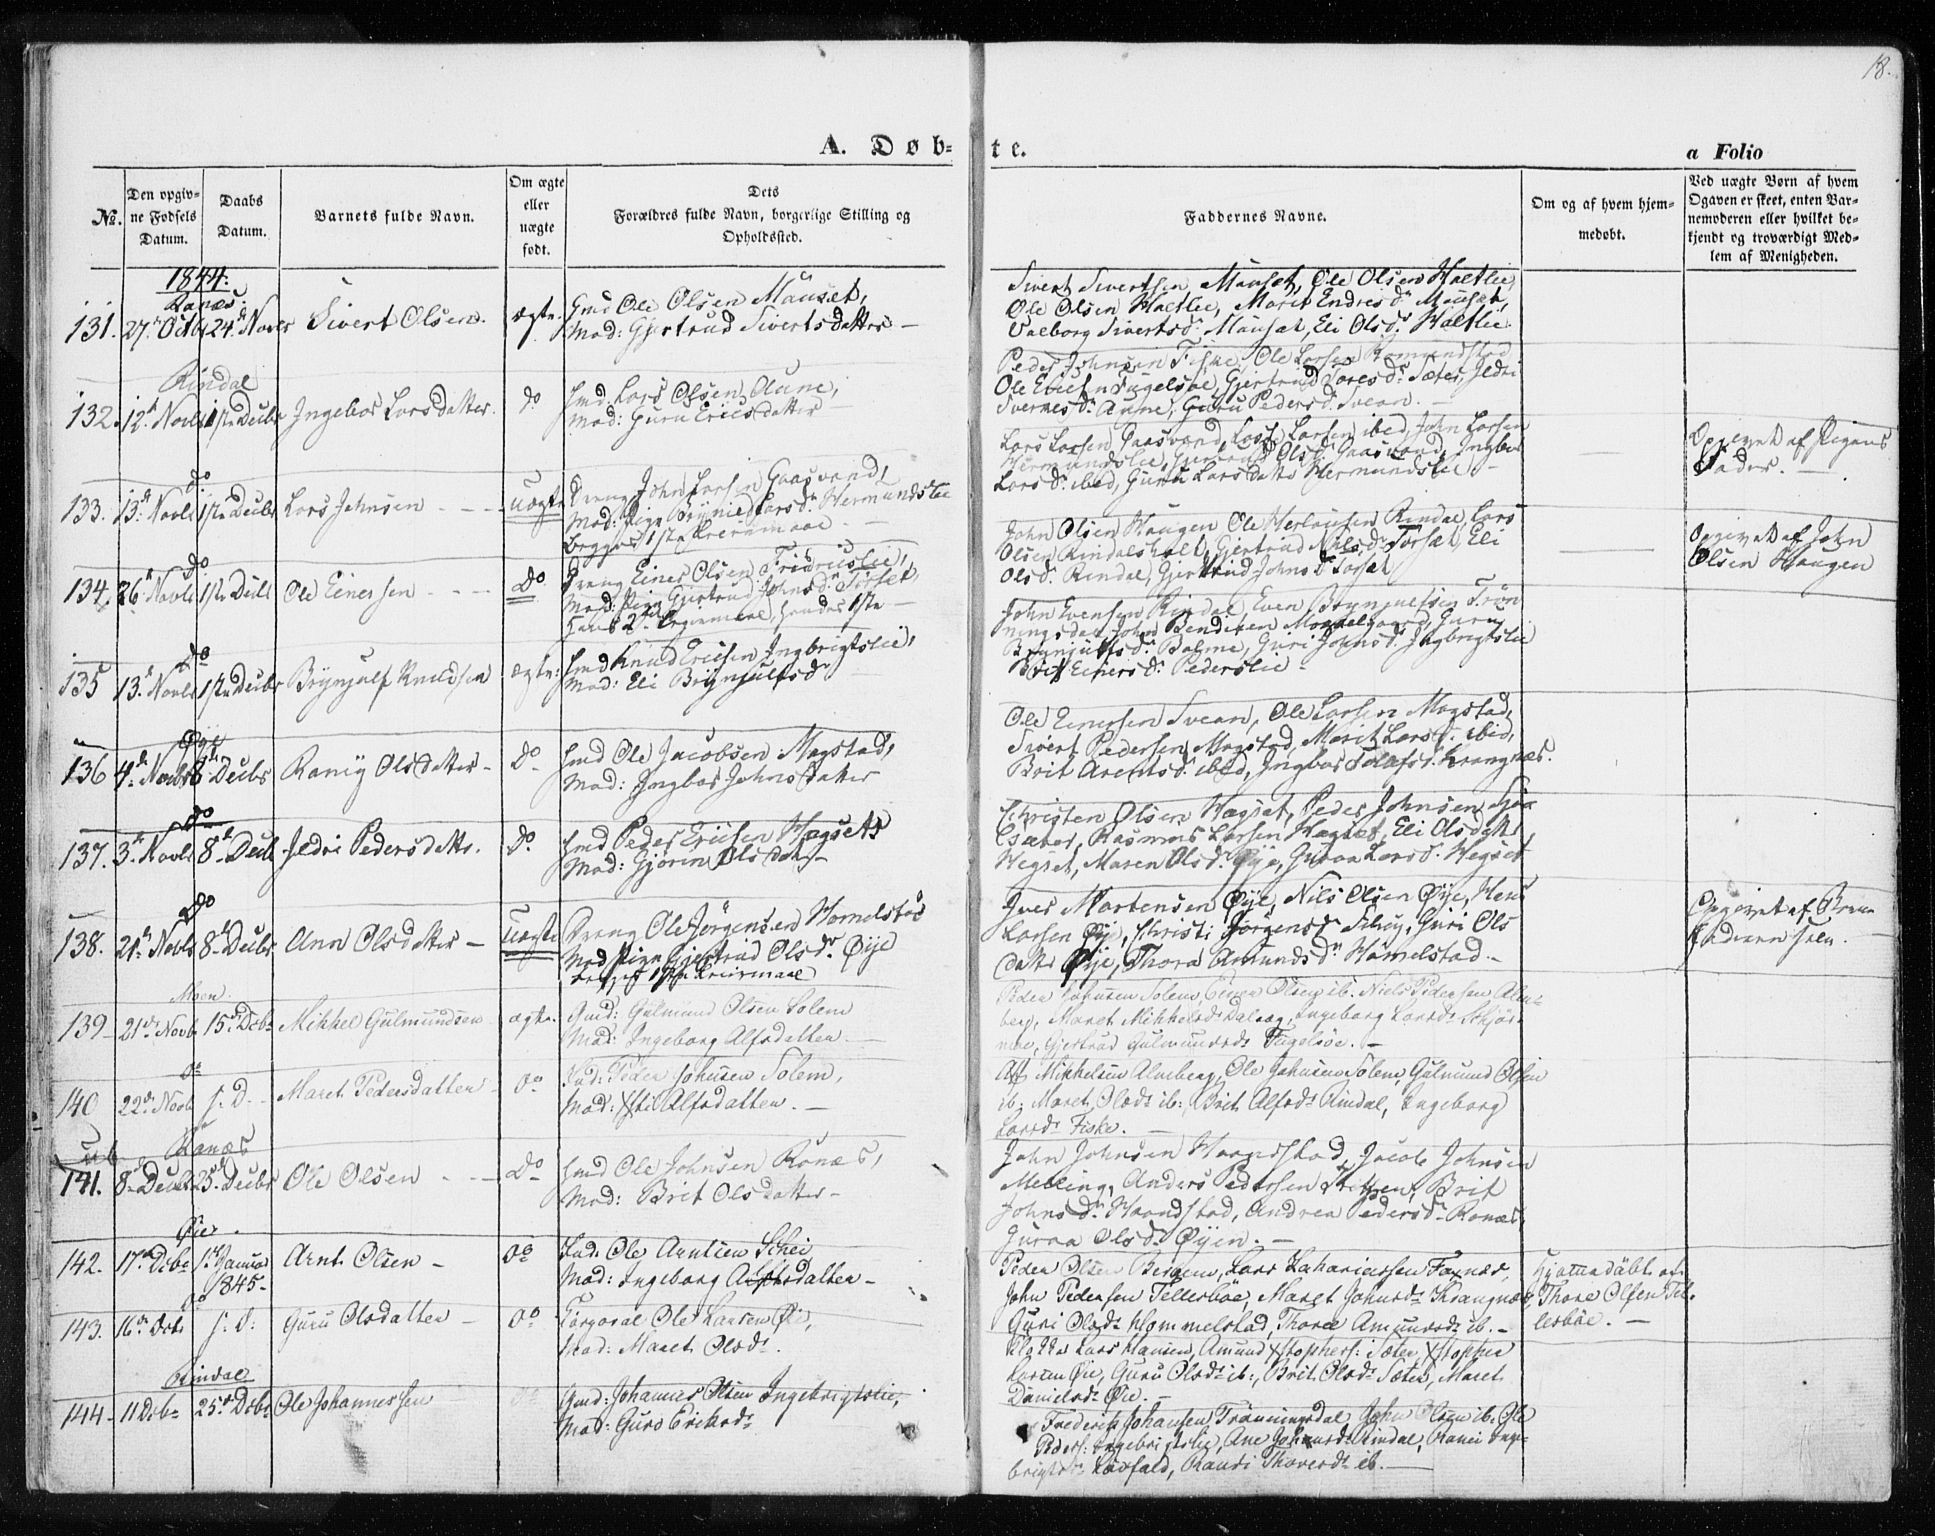 18.
A. Døb-
te.
a Folio
No.
Den opgiv-
ne Fødsels
Datum.
Daabs
Datum.
Barnets fulde Navn.
Om ægte
eller
uægte
født.
Dets
Forældres fulde Navn, borgerlige Stilling og
Opholdssted.
Faddernes Navne.
Om og af hvem hjem-
medøbt.
Ved uægte Børn af hvem
Opgaven er skeet, enten Bar-
nemoderen eller hvilket be-
kjendt og troværdigt Med-
lem af Menigheden.
1844.
Ranæs
131. 27. Octbr 24d Novbr Sivert Olsen ægte.
Gmd Ole Olsen Mauset,
Mod: Gjertrud Sivertsdatter —
Sivert Sivertsen Mauset, Ole Olsen Haltlie
Ole Olsen Haltlie, Marit Endresdr Mauset,
Valborg Sivertsdr Mauset, Eli Olsdr Haltlie
Rindal
132. 12d Novbr 1ste Decbr Ingebor Larsdatter do
Lars Olsen Aune,
Mod: Guru Ericsdatter —
Peder Johnsen Fiske, Ole Larsen
Ole Fugelsøe, Gjertrud Toresdr Sæter, Jldri
Aune, Guru Pedersdr Svean. —
do
133. 13d Novbr 1ste Decbr Lars Johnsen uægte
Dreng John Larsen Gaasvand,
Mod: Pige Larsdr Hermundslie
begges 1ste Leiermaal —
Lars Larsen Gaasvand, Larsen ibed, John Larsen
Hermundslie, Olsdr Gaasvand, Ingbor
Larsdr ibed, Guru Larsdatter Hermundslie —
Opgivet af Pigens
Fader. —
do
134. 26d Novbr 1ste Decbr Ole Einersen do
Dreng Einer Olsen Fridrichslie,
Mod: Pige Gjertrud Johnsdr Torset,
hans 2det Leiermaal, hendes 1ste —
John Olsen Haugen Ole Rindal, Lars
Olsen Rindalsholt, Gjertrud Nilsdr Torset, Eli
Olsdr Rindal, Gjertrud Johnsdr Torset
Opgivet af John
Olsen Haugen
do
135 13. Novbr 1ste Decbr Brynjulf Knudsen ægte:
Knud Ericsen Ingbrigtslie,
Mod: Eli Brynjulfsdr —
John Evensen Rindal, Even Brynjulfsen Trøn-
ningsdal, John Bendixen Guru
Brynjulfsdr Bolme, Guri Johnsdr Ingbrigtslie
Brit Einersdr Pederslie
Øye
136 4d Novbr 8d Decbr Ranig Olsdatter — do
Ole Jacobsen Magstad,
Mod: Ingbor Johnsdatter
Ole Einersen Svean, Ole Larsen Magstad,
Sivert Pedersen Magstad, Marit Larsdr ibid,
Brit Arentsdr ibed, Ingbor Krangnæs.
do
137. 3d Novbr 8d Decbr Jldri Pedersdatter. do
Peder Ericsen Hegset
Mod: Gjørin Olsdatter —
Christen Olsen Hægset, Peder Johnsen
Rasmus Larsen Hægset, Eli Olsdatter
Hegset, Maren Olsdr Øye, Guroa Larsdr Hegset
do
138. 21d Novbr 8d Decbr Ann Olsdatter — uægte
Dreng Ole Jørgensen Homelstad
Mod Pige Gjertrud Olsdr Øye
begges 1ste Leiermaal
Iver Mortensen Øye, Nils Olsen Øye, Hans
Larsen Øye, Christi Jørgensdr Guri Ols
datter Øye, Thora Amundsdr Homelstad. —
Opgivet af Barne
faderen selv. —
Moen.
139 — 21de Novb 15de Dcbr Mikkel Gulmundsen ægte.
Gmd: Gulmund Olsen Solem
Mod: Ingeborg Alfsdatter. —
Peder Johnsen Solem, Einer Olsen ib. Niels Pedersen Alm-
berg, Maret Mikkelsdr Ingeborg Larsdr
Gjertrud Gulmundsdr Fugelsøe. —
do
140 22de Novb s. D. Maret Pedersdatter do
Peder Johnsen Solem,
Mod: Xsti Alfsdatter. —
Alf Mikkelsen Almberg, Ole Johnsen Solem, Gulmund Olsen
ib, Maret Olsdr ib:, Brit Alfsdr Rindal, Ingeborg
Larsdr Fiske. —
Ranæs
141. 8d Decbr 25d Decbr Ole Olsen do
Ole Johnsen Ronæs,
Mod: Brit Olsdatter —
John Johnsen Haandstad, Jacob Johnsen
Melling, Anders Pedersen Brit
Johnsdr Haandstad, Andrea Pedersdr Ronæs,
Guroa Olsdr Øyen. —
Øie.
142. 17de Dcbr 1ste Januar Arnt Olsen — do
1845.
Ole Arntsen Schei
Mod: Ingeborg datter —
Peder Olsen Bergem, Lars Zakariassen
John Pedersen Tellesbøe, Maret Johnsdr Krangnæs,
Guri Olsdr Hommelstad, Thore Amundsdr ib. —
Hjemmedøbt af
Thore Olsen Tel-
lesbøe. —
do
143. 16de Dcbr s: D: Guru Olsdatter — do
Ole Larsen Øie,
Mod: Maret Olsdr.
Lars Hansen, Amund Xstophers: Sæter, Xstopher
Larsen Øie, Guru Olsdr ib:, Brit Olsdr Sæter, Maret
Danielsdr Øie. —
Rindal
144 — 11 Dcbr 25de Dcbr Ole Johannessen
Gmd: Johannes Olsen Ingebrigtslie,
Mod: Guro Eriksdr
Frederik Johansen Trønningsdal, John Olsen ib. Ole
Peders: Ingebrigtslie, Ane Johansdr Rindal, Ranei Inge-
brigtsdr Randi Thoresdr ib. —